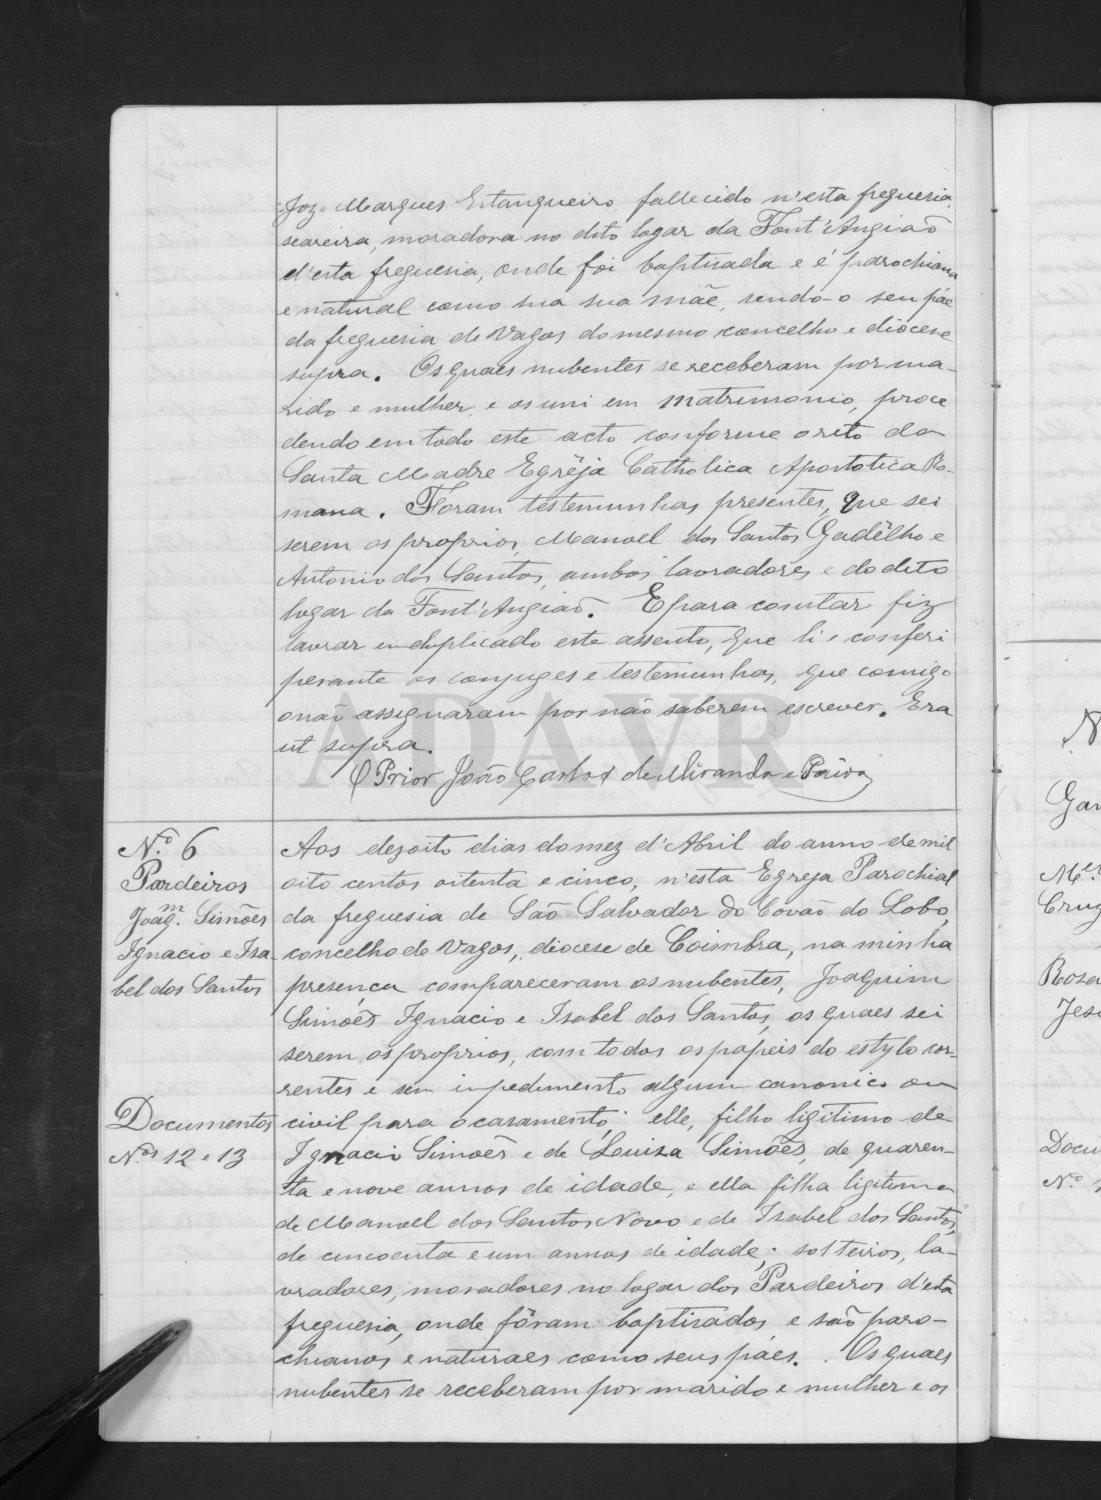 Joze Marques Estanqueiro, fallecido n'esta freguesia,
seareira, moradora no dito logar da Font'Angião
d'esta freguesia, onde foi baptisada e é parochiana
e natural como sua sua mãe, sendo-o seu páe
da freguesia de Vagos do mesmo concelho e diocese
supra. Os quaes nubentes se receberam por ma-
rido e mulher, e os uni em matrimonio, proce
dendo em todo este acto conforme o rito da
Santa Madre Egrêja Catholica Apostolica Ro-
mana. Foram testemunhas presentes, que sei
serem os proprios, Manoel dos Santos Gadêlho e
Antonio dos Santos, ambos lavradores e do dito
logar da Font'Angião. E para constar fiz
lavrar em duplicado este assento, que li e conferi
perante os conjuges e testemunhas, que comigo
o não assignaram por não saberem escrever. Era
ut supra.
O Prior João Carlos de Miranda e Paiva
ADAVR
N.º 6
Pardeiros
Joaq.m Simões
Ignacio e Isa-
bel dos Santos
Documentos
N.os 12 e 13
Aos dezoito dias do mez d'Abril do anno de mil
oito centos oitenta e cinco, n'esta Egreja Parochial
da freguesia de São Salvador do Covão do Lobo,
concelho de Vagos, diocese de Coimbra, na minha
presença compareceram os nubentes, Joaquim
Simões Ignacio e Isabel dos Santos, os quaes sei
serem os proprios, com todos os papeis do estylo cor-
rentes e sem impedimento algum canonico ou
civil para o casamento; elle, filho ligitimo de
Ignacio Simões e de Louiza Simões, de quaren-
ta e nove annos de idade, e ella filha ligitima
de Manoel dos Santos Novo e de Isabel dos Santos,
de cincoenta e um annos de idade; solteiros, la-
vradores, moradores no logar dos Pardeiros d'esta
freguesia, onde fôram baptisados, e são paro-
chianos e naturaes como seus páes. Os quaes
nubentes se receberam por marido e mulher e os
N
Gan
Cruz
Rosa
Jesu
Docu
N.º